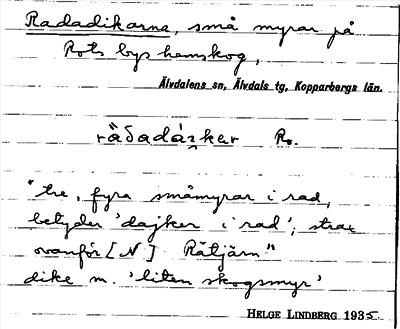 Radadikarna, små myrar på
Rots bys hemskog,
Älvdalens sn, Älvdals tg, Kopparbergs län.
Ro.
"tre, fyra småmyrar i rad,
betyder 'dajker i rad', strax
ovanför [N] Råtjärn"
dike m. 'liten skogsmyr'
HELGE LINDBERG 1935.